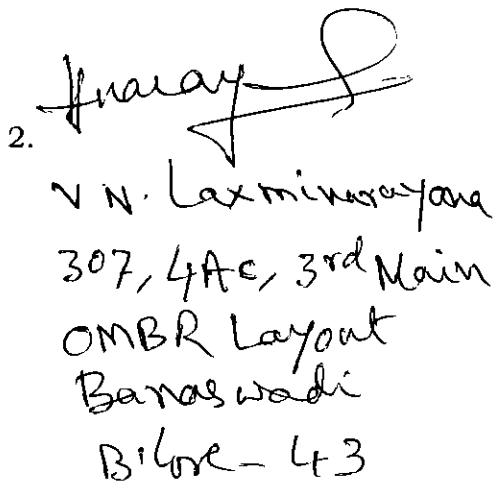 2.
V N. Laxminarayana
307, 4AC, 3rd Main
OMBR Layout
Banaswadi
B'lore - 43